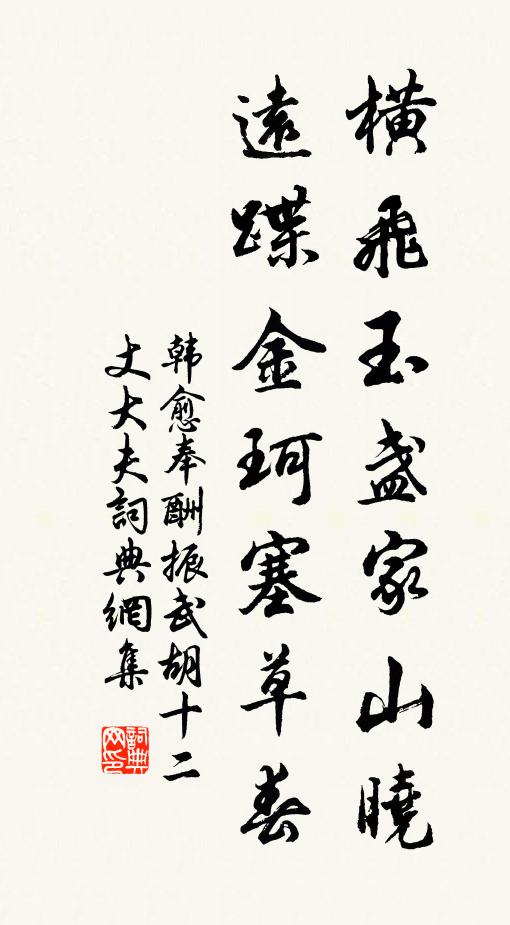 橫飛玉盞家山曉
遠蹀金珂塞草春
韩愈奉酬振武胡十二
丈大夫詞典網集
詞典
网印